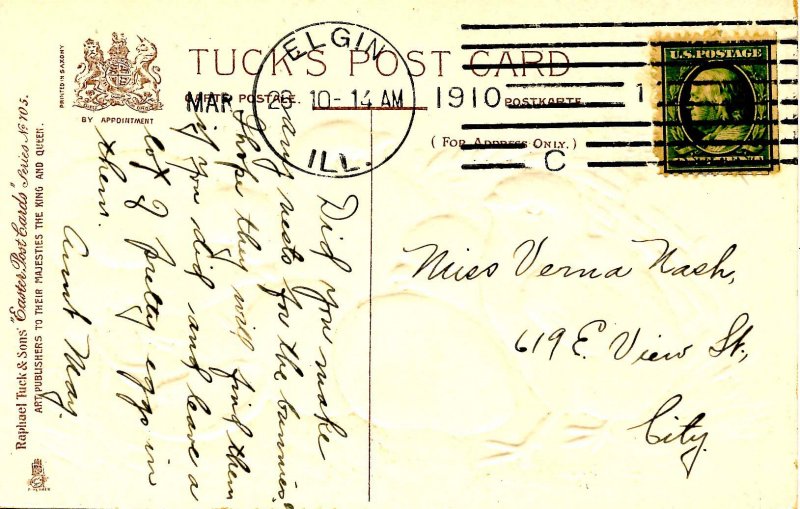 TUCK'S POST CARD
CARTE POSTALE. POSTKARTE
(FOR ADDRESS ONLY.)
BY APPOINTMENT
PRINTED IN SAXONY
Raphael Tuck & Sons' "Easter Post Cards" Series No 105.
ART PUBLISHERS TO THEIR MAJESTIES THE KING AND QUEEN.
ELGIN
MAR 23 10-14 AM 1910
ILL.
C
1
U.S. POSTAGE
Did you make
many nests for the bunnies,
I hope they will find them
if you did and leave a
lot of pretty eggs in
them.
Aunt May.
Miss Verna Nash,
619 E. View St.,
City.